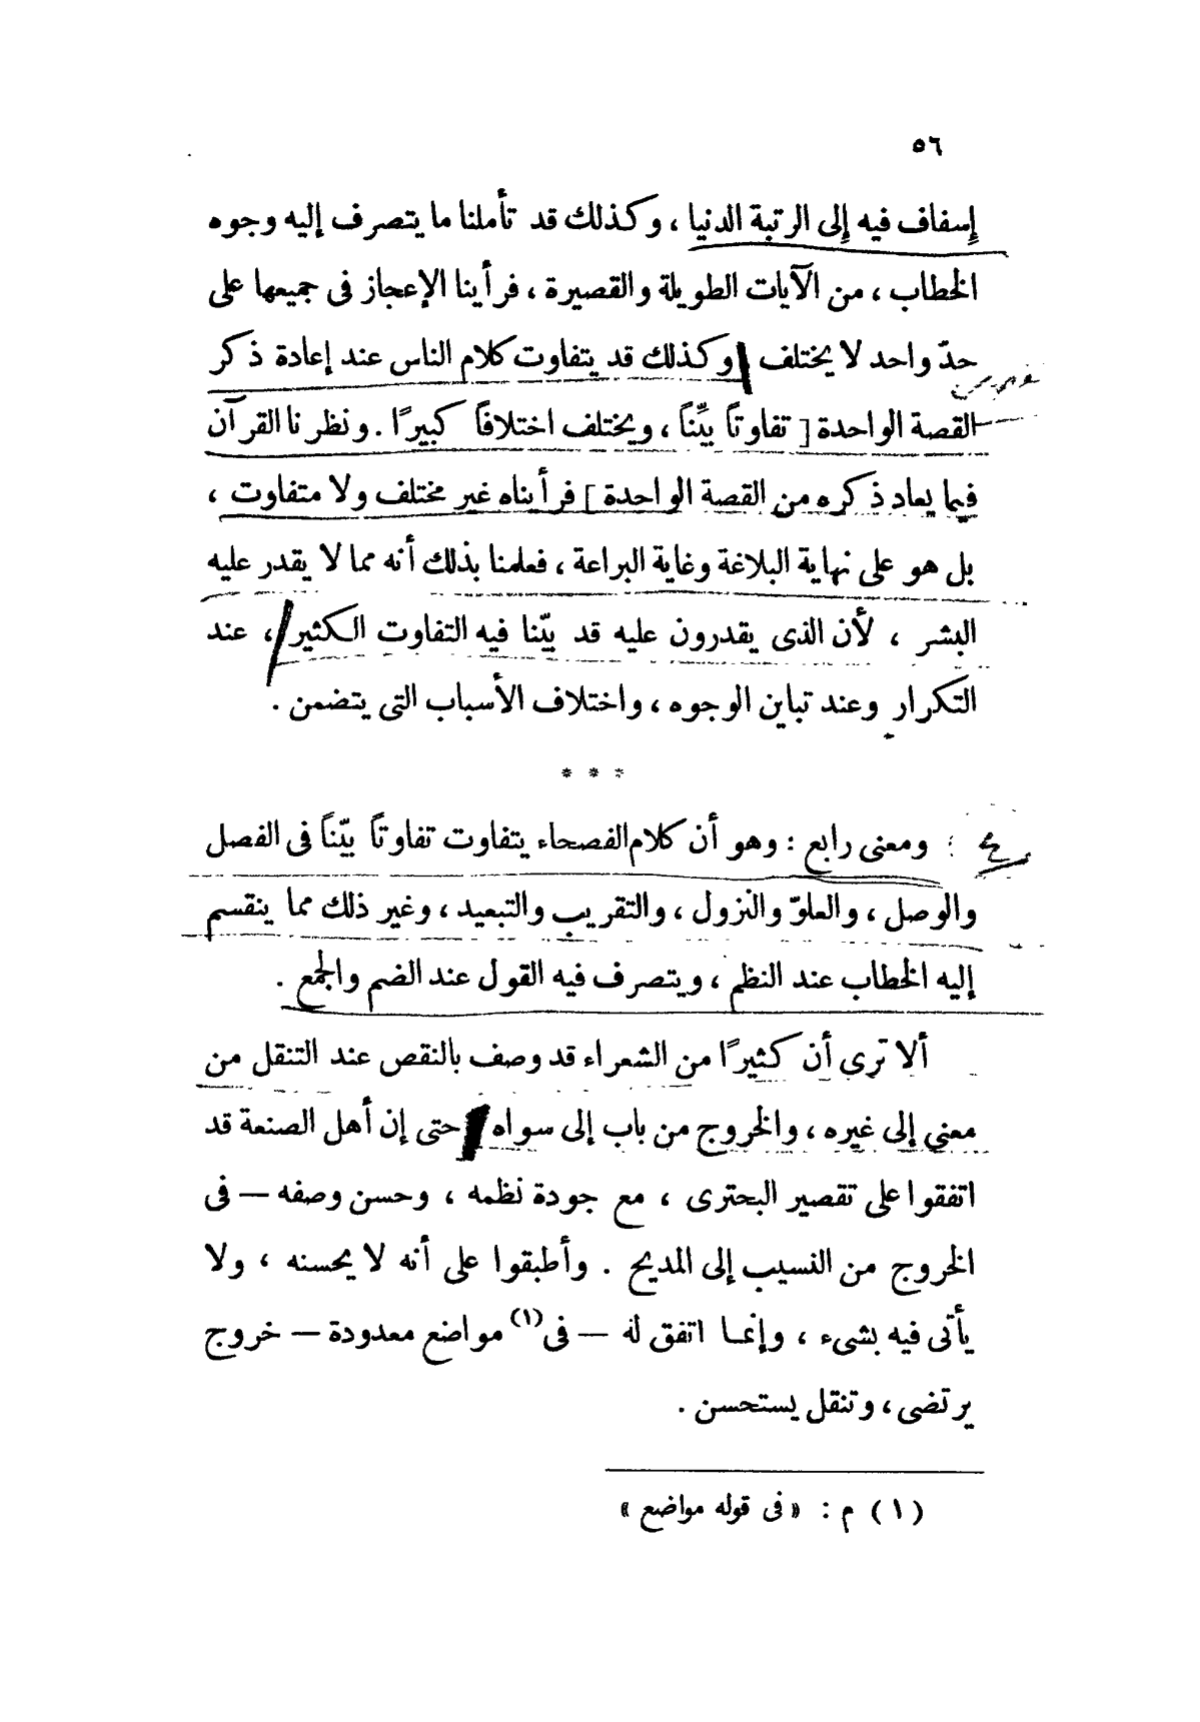 ٥٦
إسفاف فيه إلى الرتبة الدنيا ، وكذلك قد تأملنا ما يتصرف إليه وجوه
الخطاب ، من الآيات الطويلة والقصيرة ، فرأينا الإعجاز فى جميعها على
حدّ واحد لا يختلف وكذلك قد يتفاوت كلام الناس عند إعادة ذكر
القصة الواحدة [ تفاوتاً بيِّناً ، ويختلف اختلافاً كبيرًا . ونظرنا القرآن
فيما يعاد ذكره من القصة الواحدة ] فرأيناه غير مختلف ولا متفاوت ،
بل هو على نهاية البلاغة وغاية البراعة ، فعلمنا بذلك أنه مما لا يقدر عليه
البشر ، لأن الذى يقدرون عليه قد بيّنا فيه التفاوت الكثير ، عند
التكرار وعند تباين الوجوه ، واختلاف الأسباب التى يتضمن .
* * *
ومعنى رابع : وهو أن كلام الفصحاء يتفاوت تفاوتاً بيّناً فى الفصل
والوصل ، والعلوّ والنزول ، والتقريب والتبعيد ، وغير ذلك مما ينقسم
إليه الخطاب عند النظم ، ويتصرف فيه القول عند الضم والجمع .
ألا ترى أن كثيرًا من الشعراء قد وصف بالنقص عند التنقل من
معنى إلى غيره ، والخروج من باب إلى سواه حتى إن أهل الصنعة قد
اتفقوا على تقصير البحترى ، مع جودة نظمه ، وحسن وصفه — فى
الخروج من النسيب إلى المديح . وأطبقوا على أنه لا يحسنه ، ولا
يأتى فيه بشىء ، وإنما اتفق له — فى(١) مواضع معدودة — خروج
يرتضى ، وتنقل يستحسن .
(١) م : « فى قوله مواضع »